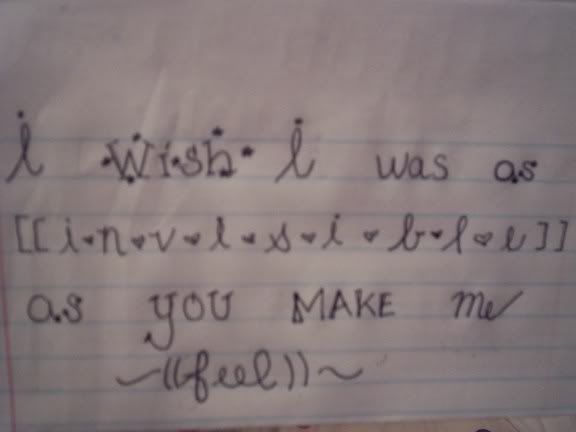 i •W•i•s•h• i was as
[[i♥n♥v♥i♥s♥i♥b♥l♥e]]
as you MAKE me
~((feel))~